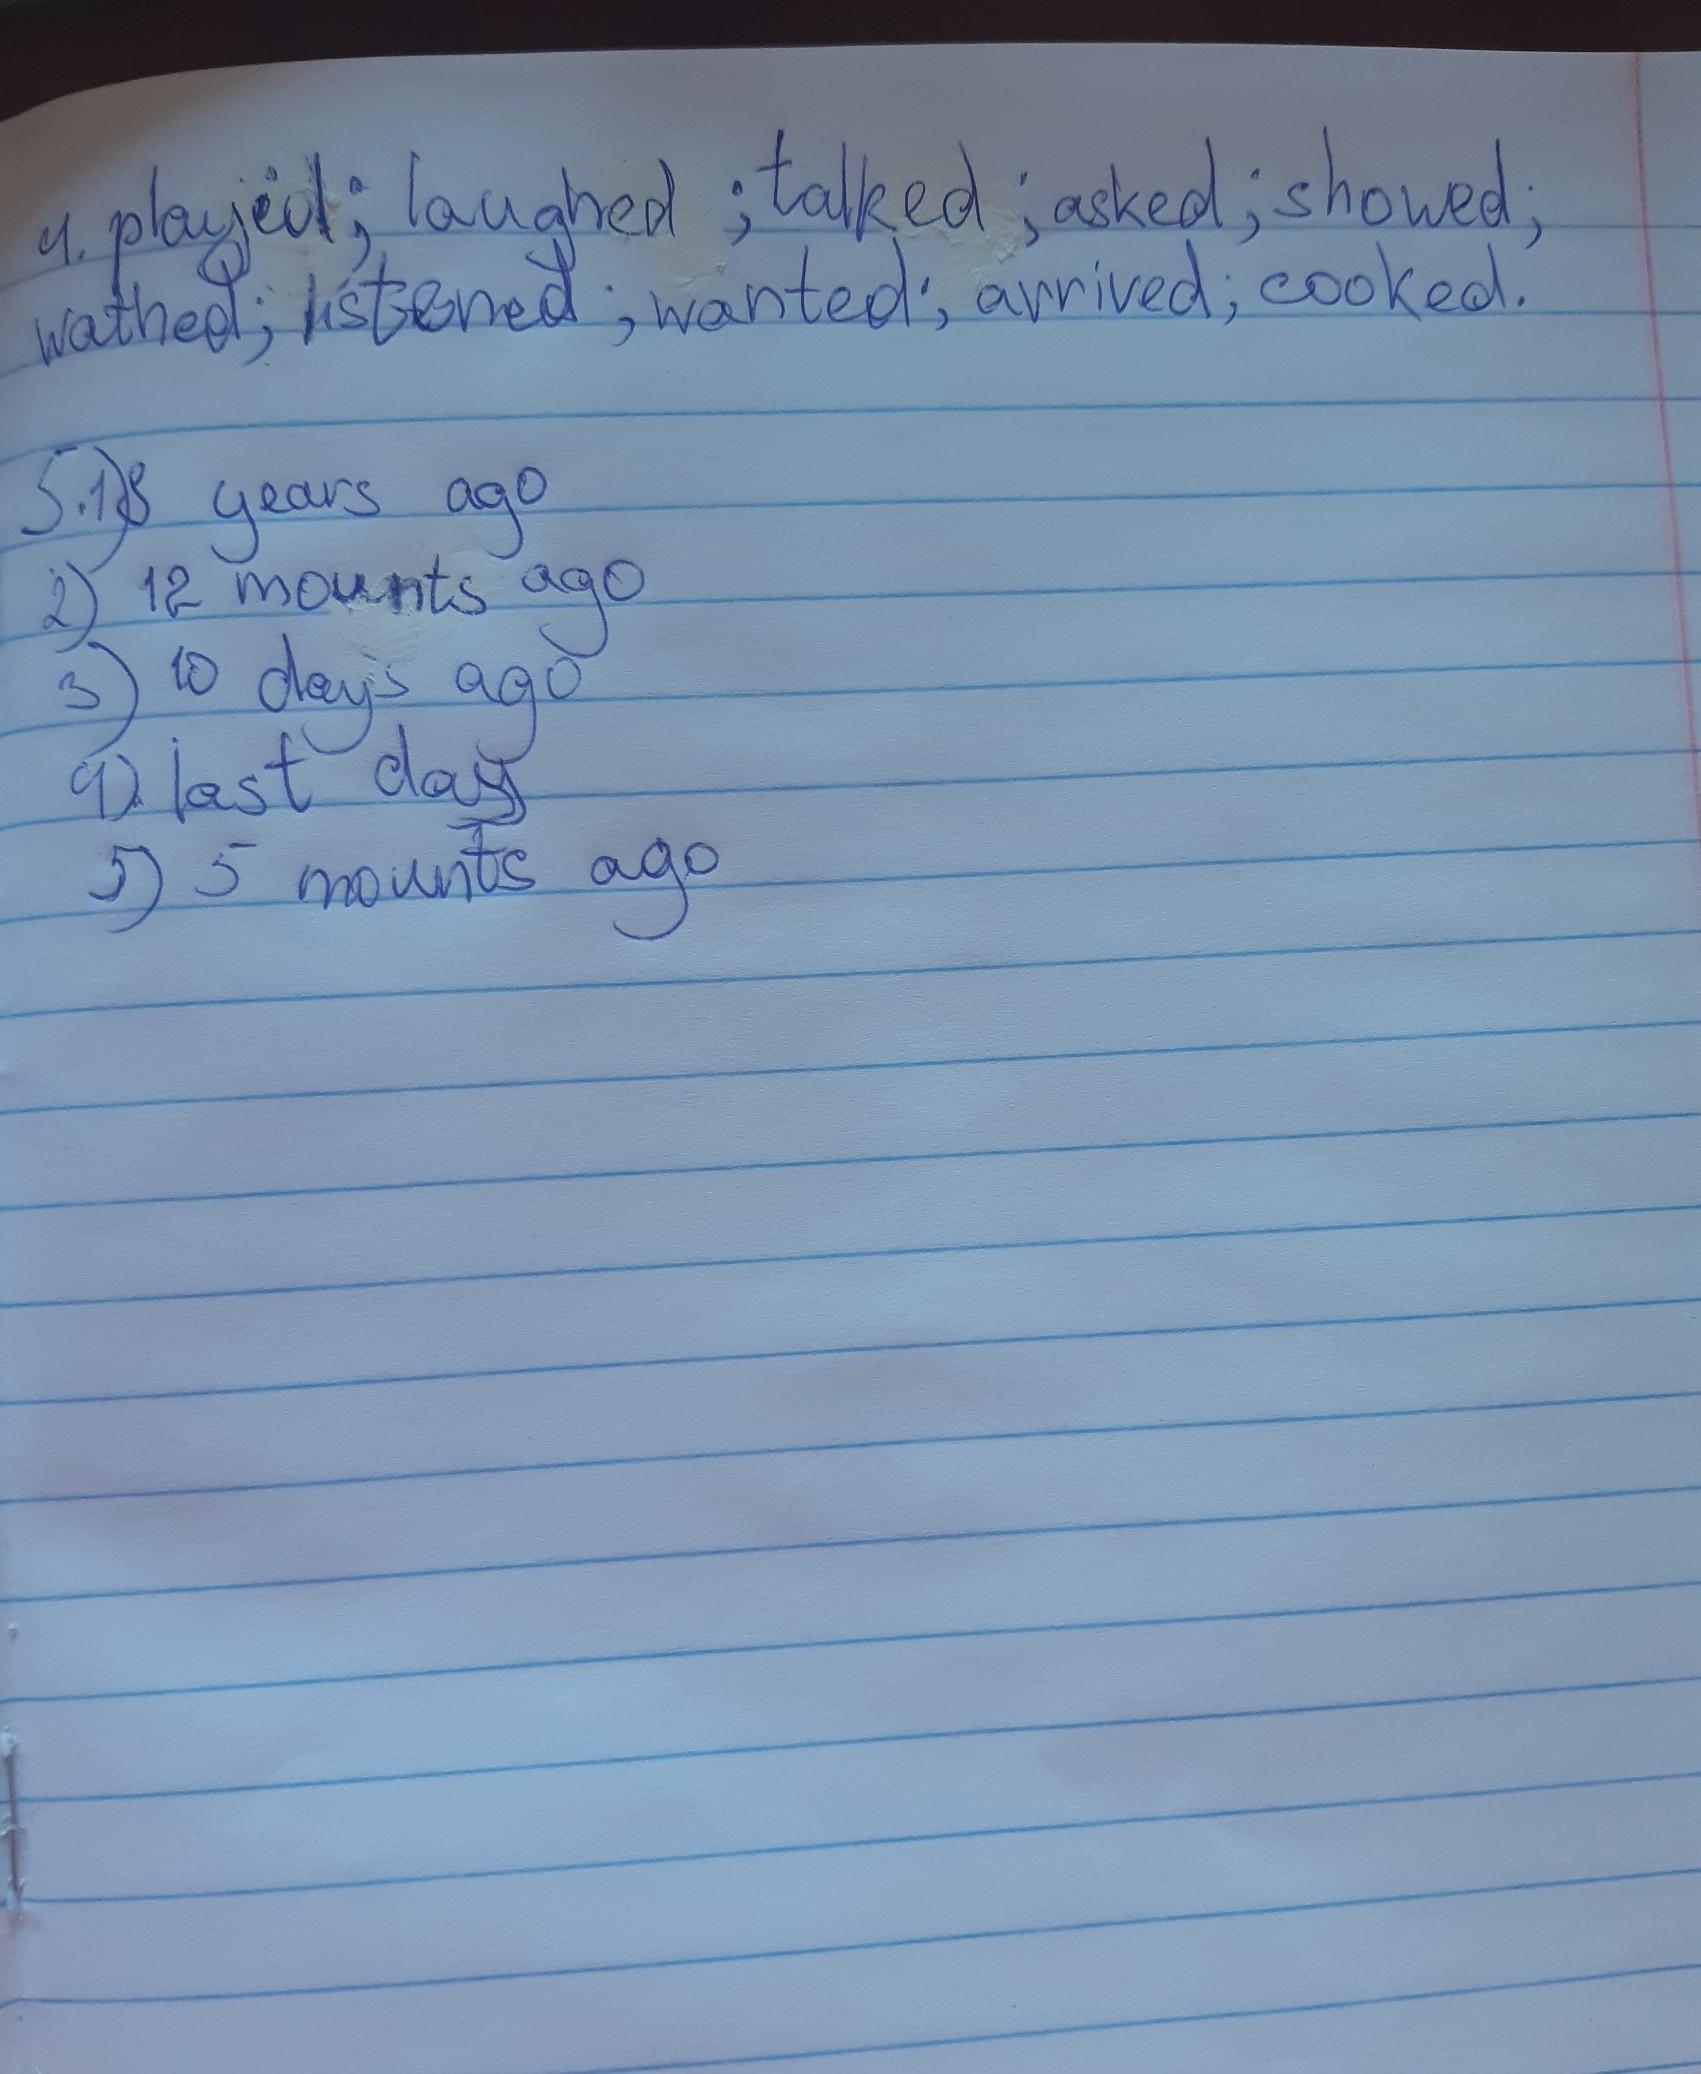 4. played; laughed; talked; asked; showed;
wathed; listened; wanted; arrived; cooked.
5.1) 8 years ago
2) 12 mounts ago
3) 10 days ago
4) last day
5) 5 mounts ago